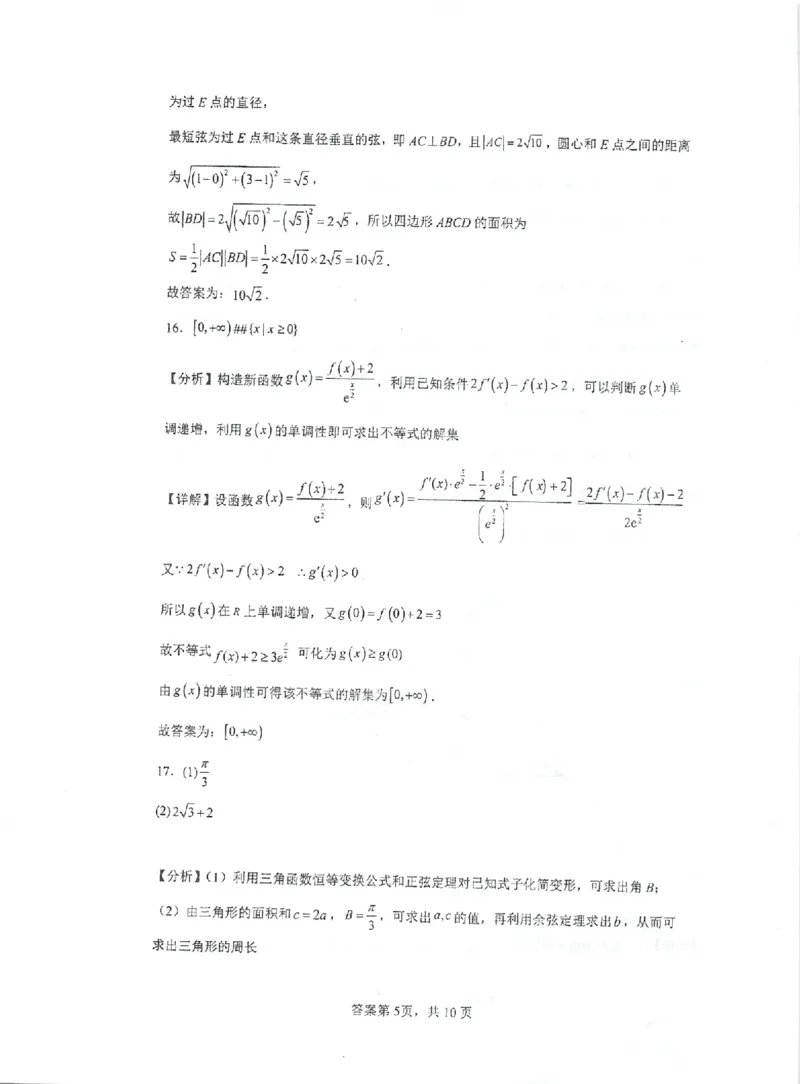 为过 E 点的直径，
最短弦为过 E 点和这条直径垂直的弦，即 AC⊥BD，且|AC|=2√10，圆心和 E 点之间的距离
为√((1-0)²+(3-1)²)=√5，
故|BD|=2√((√10)²-(√5)²)=2√5，所以四边形 ABCD 的面积为
S=1/2|AC||BD|=1/2×2√10×2√5=10√2．
故答案为：10√2．
16．[0,+∞)##{x|x≥0}
【分析】构造新函数g(x)=(f(x)+2)/e^(x/2)，利用已知条件2f′(x)-f(x)>2，可以判断g(x)单
调递增，利用g(x)的单调性即可求出不等式的解集
【详解】设函数g(x)=(f(x)+2)/e^(x/2)，则g′(x)=(f′(x)·e^(x/2)-1/2·e^(x/2)·[f(x)+2])/(e^(x/2))²=(2f′(x)-f(x)-2)/(2e^(x/2))
又∵2f′(x)-f(x)>2 ∴g′(x)>0
所以g(x)在R上单调递增，又g(0)=f(0)+2=3
故不等式f(x)+2≥3e^(x/2) 可化为g(x)≥g(0)
由g(x)的单调性可得该不等式的解集为[0,+∞)．
故答案为：[0,+∞)
17．(1)π/3
(2)2√3+2
【分析】（1）利用三角函数恒等变换公式和正弦定理对已知式子化简变形，可求出角 B；
（2）由三角形的面积和c=2a，B=π/3，可求出a,c的值，再利用余弦定理求出b，从而可
求出三角形的周长
答案第5页，共10页